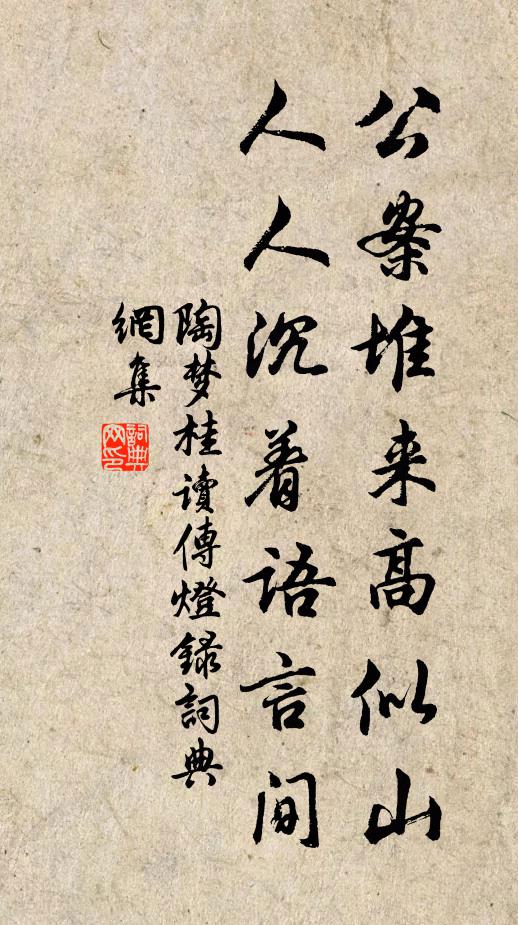 公案堆来高似山
人人沉着语言间
陶梦桂读傅燈録詞典
網集
詞典网印